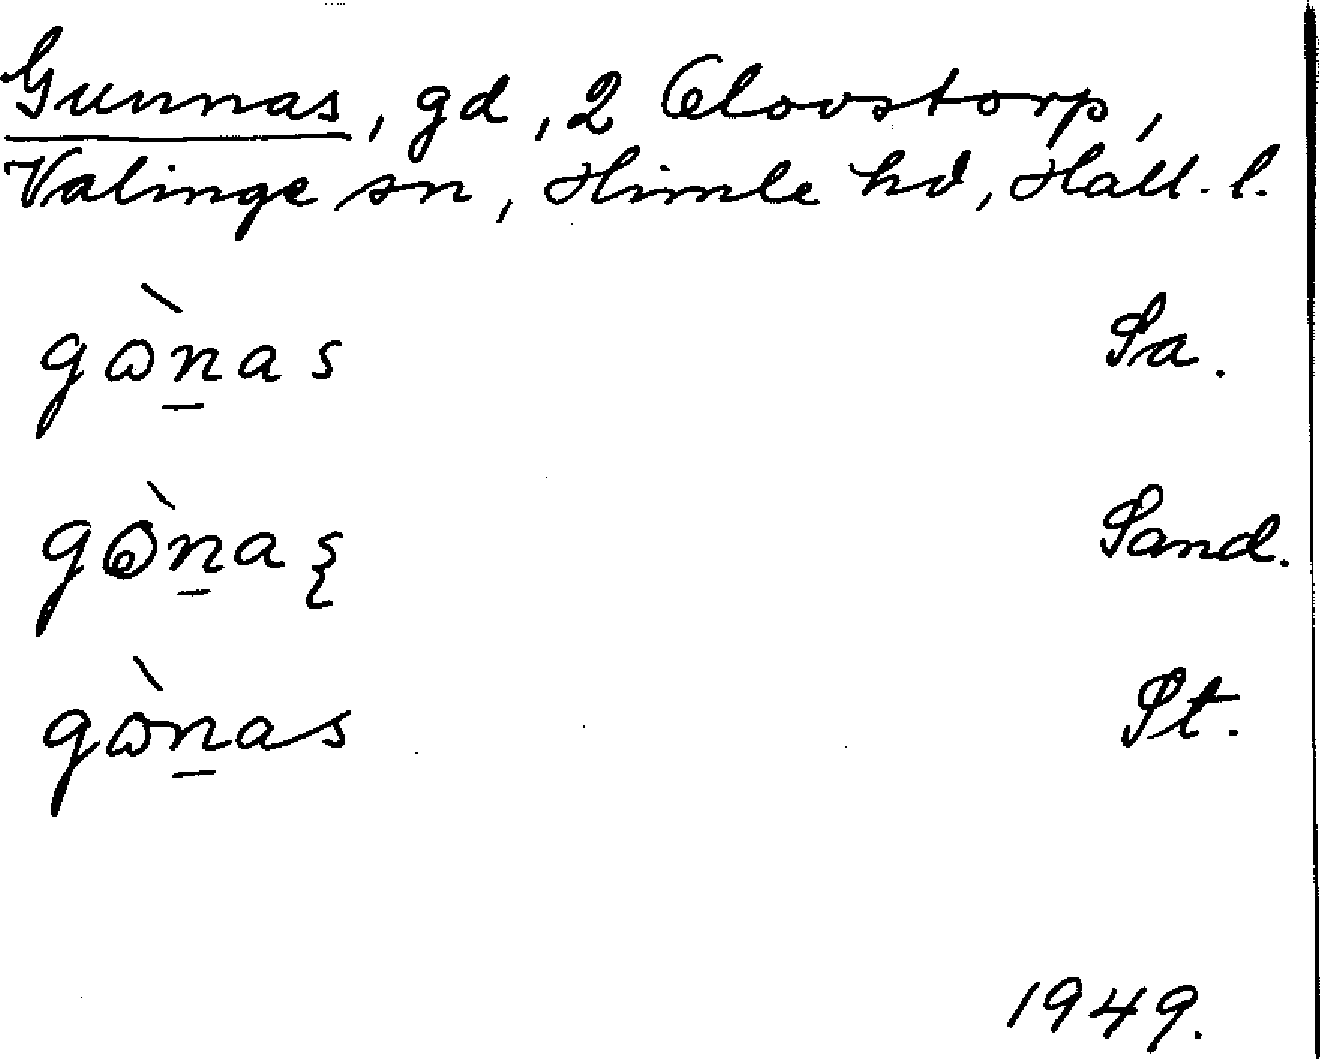 Gunnas, gd, 2 Olovstorp,
Valinge sn, Himle hd, Hall. l.
gὼn̲as Sa.
gὼn̲aş Sand.
gὼn̲as St.
1949.